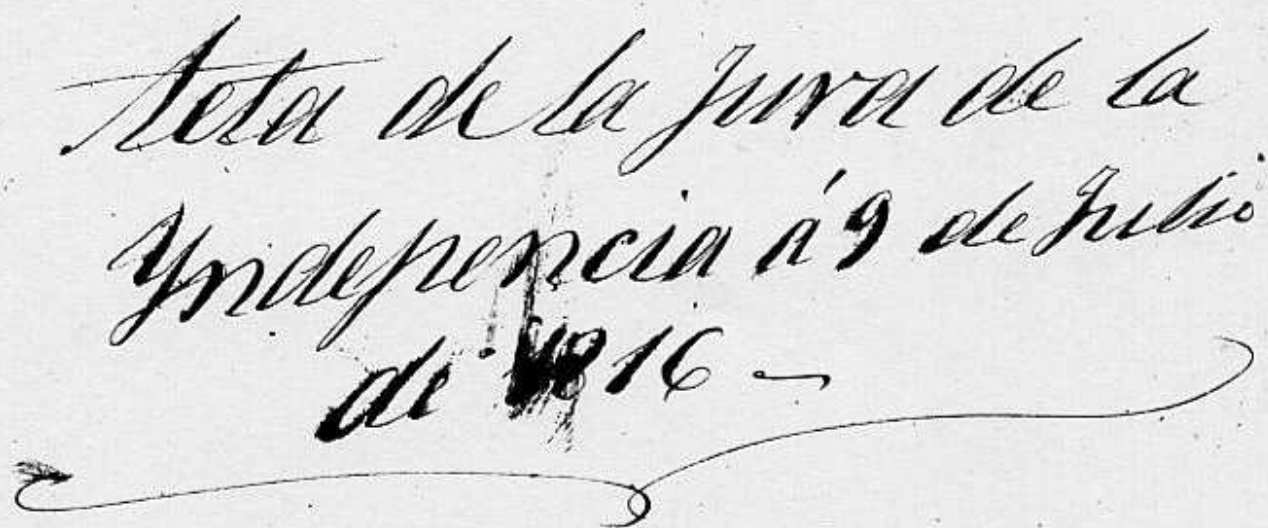 Acta de la Jura de la
Yndepencia á 9 de Julio
de 1816 -